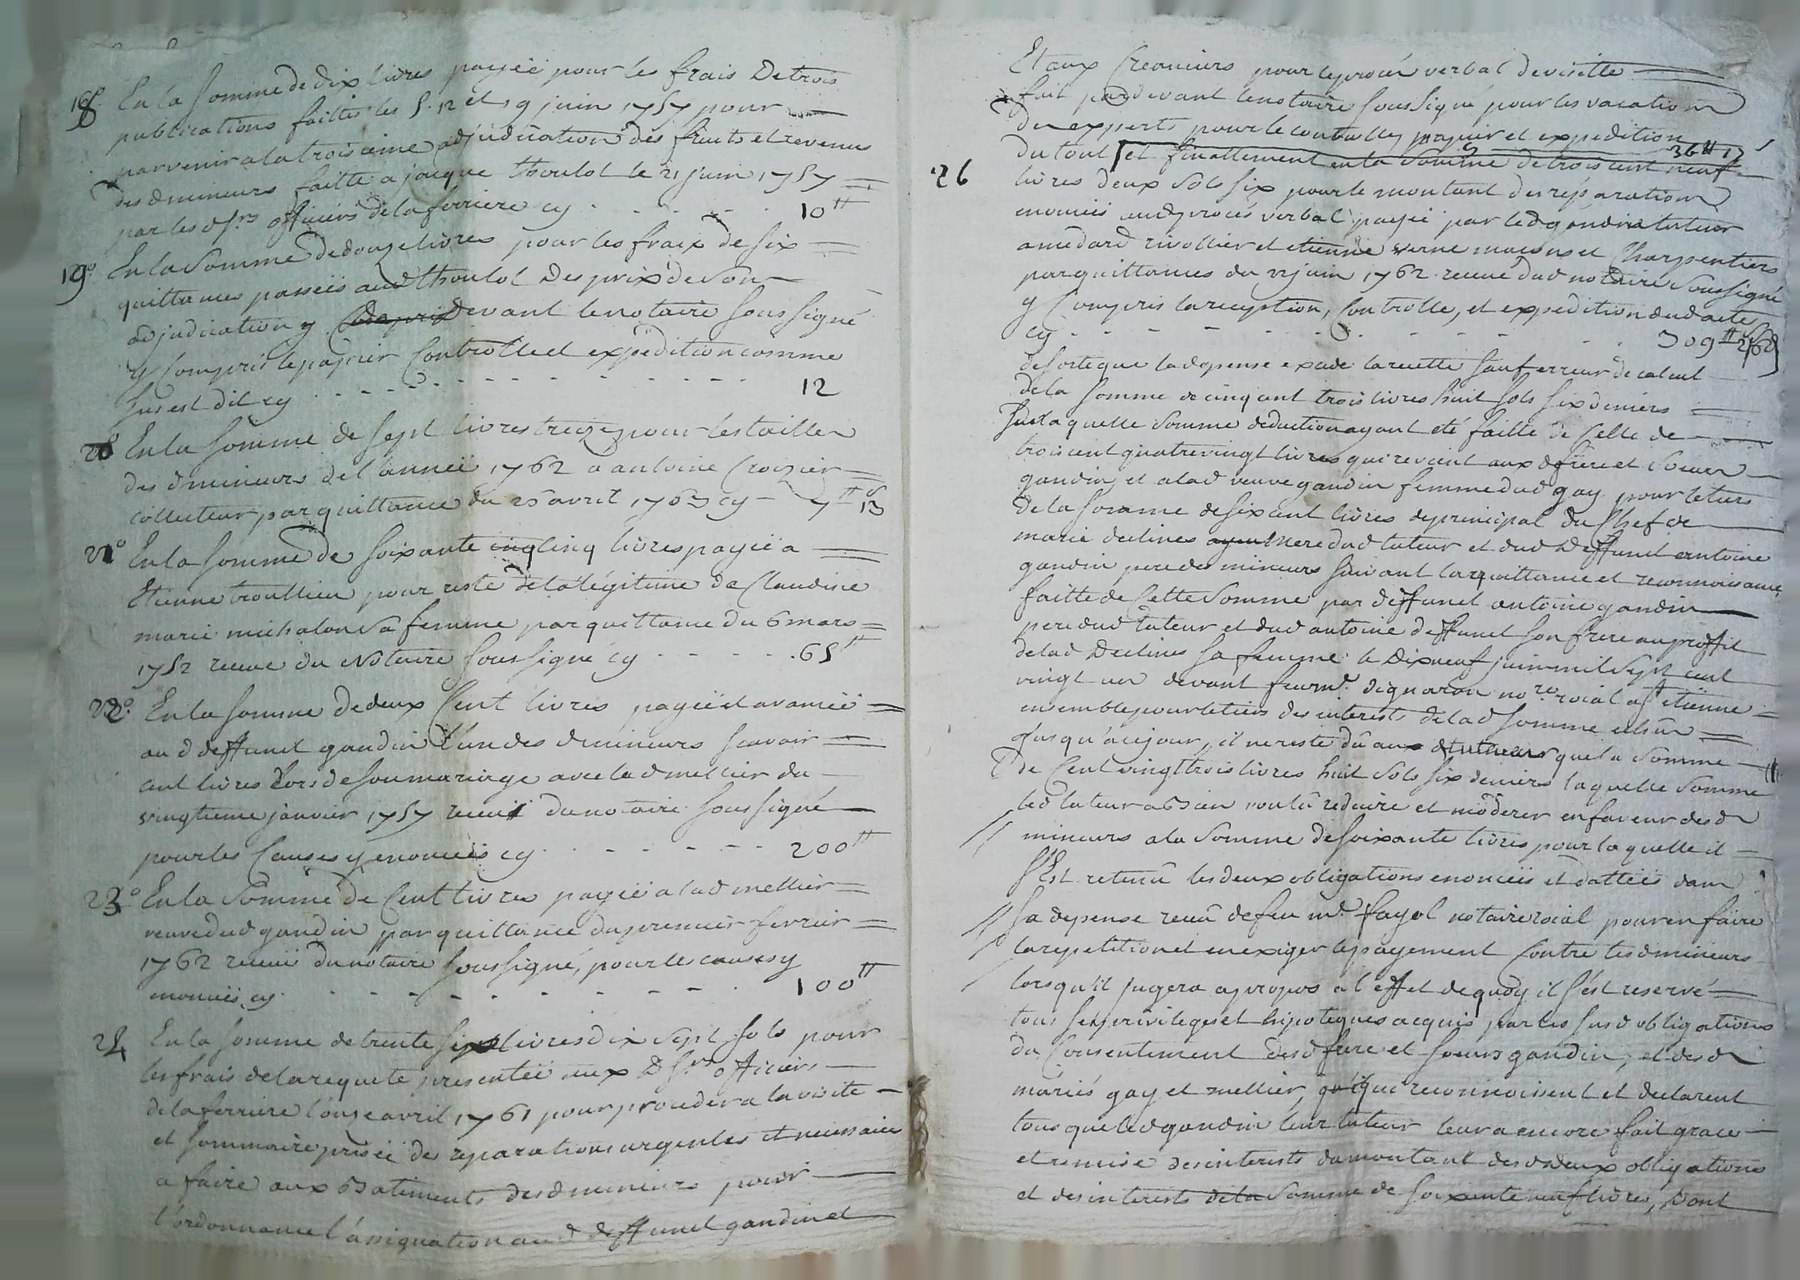 18° En la somme de dix livres payée pour les frais de trois
publications faittes les 5. 12 et 19 juin 1757 pour
parvenir a la troisieme adjudication des fruits et revenus
desd mineurs faitte a jacque thoulot le 21 juin 1757
par les d. srs officiers de la ferriere cy 10tt
19° En la somme de douze livres pour les fraix de six
quittances passées aud thoulot des prix de son
adjudication y devant le notaire soussigné
y compris le papier controlle et expedition comme
sus est dit cy 12
20 En la somme de sept livres treize pour les tailles
desd mineurs de l'année 1762 a antoine Crozier
collecteur par quittance du 25 avril 1763 cy 7tt 13
21° En la somme de soixante cinq livres payée a
Etienne troullieu pour reste de la légitime de Claudine
marie michalon sa femme par quittance du 6 mars
1752 recue du notaire soussigné cy 65tt
22° En la somme de deux Cent livres payée et avancée
aud deffunct gandin l'un des d mineurs scavoir
cent livres lors de son mariage avec lad mellier du
vingtieme janvier 1757 recu du notaire soussigné
pour les causes y enoncées cy 200tt
23° En la somme de Cent livres payée a lad mellier
veuve dud gandin par quittance du premier fevrier
1762 recue du notaire soussigné, pour les causes y
enoncées cy 100tt
24 En la somme de trente sept livres dix sept sols pour
les frais de la requete presentée aux d srs officiers
de la ferriere l'onze avril 1761 pour proceder a la visite
et sommaire prisée de reparations urgentes et necessaires
a faire aux batiments desd mineurs pour
l'ordonnance l'assignation aud deffunct gandin et
Et aux Creanciers pour le procés verbal de visitte
fait pardevant le notaire soussigné pour les vacations
des experts pour le controlle papier et expedition
du tout 36tt 17s
26 et finallement en la somme de trois cent neuf
livres deux sols six pour le montant des reparations
enoncées aud procés verbal payée par led gandin tuteur
a medard rivollier et etienne verne maçons et Charpentiers
par quittances du 22 juin 1762 recue dud notaire soussigné
y compris la reception, controlle, et expedition dud acte
cy 309tt 2s 6d
de sorte que la depense excede la recette sauf erreur de calcul
de la somme de cinq cent trois livres huit sols six deniers
sur laquelle somme deduction ayant eté faitte de celle de
trois cent quatre vingt livres qui revient aux d frere et soeurs
gandin et a lad veuve gandin femme dud gay pour le tiers
de la somme de six cent livres de principal du Chef de
marie declines mere dud tuteur et dud deffunct antoine
gandin pere des mineurs suivant la quittance et reconnoissance
faitte de cette somme par deffunct antoine gandin
pere dud tuteur et dud antoine deffunct son frere au proffit
de lad declines sa femme le dix neuf juin mil sept cent
vingt un devant feu me. dignaron nore. roial a st etienne
ensemble pour le tiers des interests de la d somme echus
jusqu'a ce jour, il ne reste dû au d tuteur que la somme
de Cent vingt trois livres huit sols six deniers laquelle somme
led tuteur a bien voulu reduire et moderer en faveur desd
mineurs a la somme de soixante livres pour laquelle il
s'Est retenu les deux obligations enoncées et dattées dans
sa depense recu de feu me. fayol notaire roial pour en faire
la repetition et en exiger le payement contre lesd mineurs
lorsqu'il jugera a propos a l'effet de quoy il s'est reservé
tous ses privileges et hipoteques acquis par les susd obligations
du Consentement desd frere et soeurs gandin, et desd
mariés gay et mellier, qui reconnoissent et declarent
tous que led gandin leur tuteur leur a encore fait grace
et remise des interests du montant desd deux obligations
et des interests de la somme de soixante neuf livres, dont